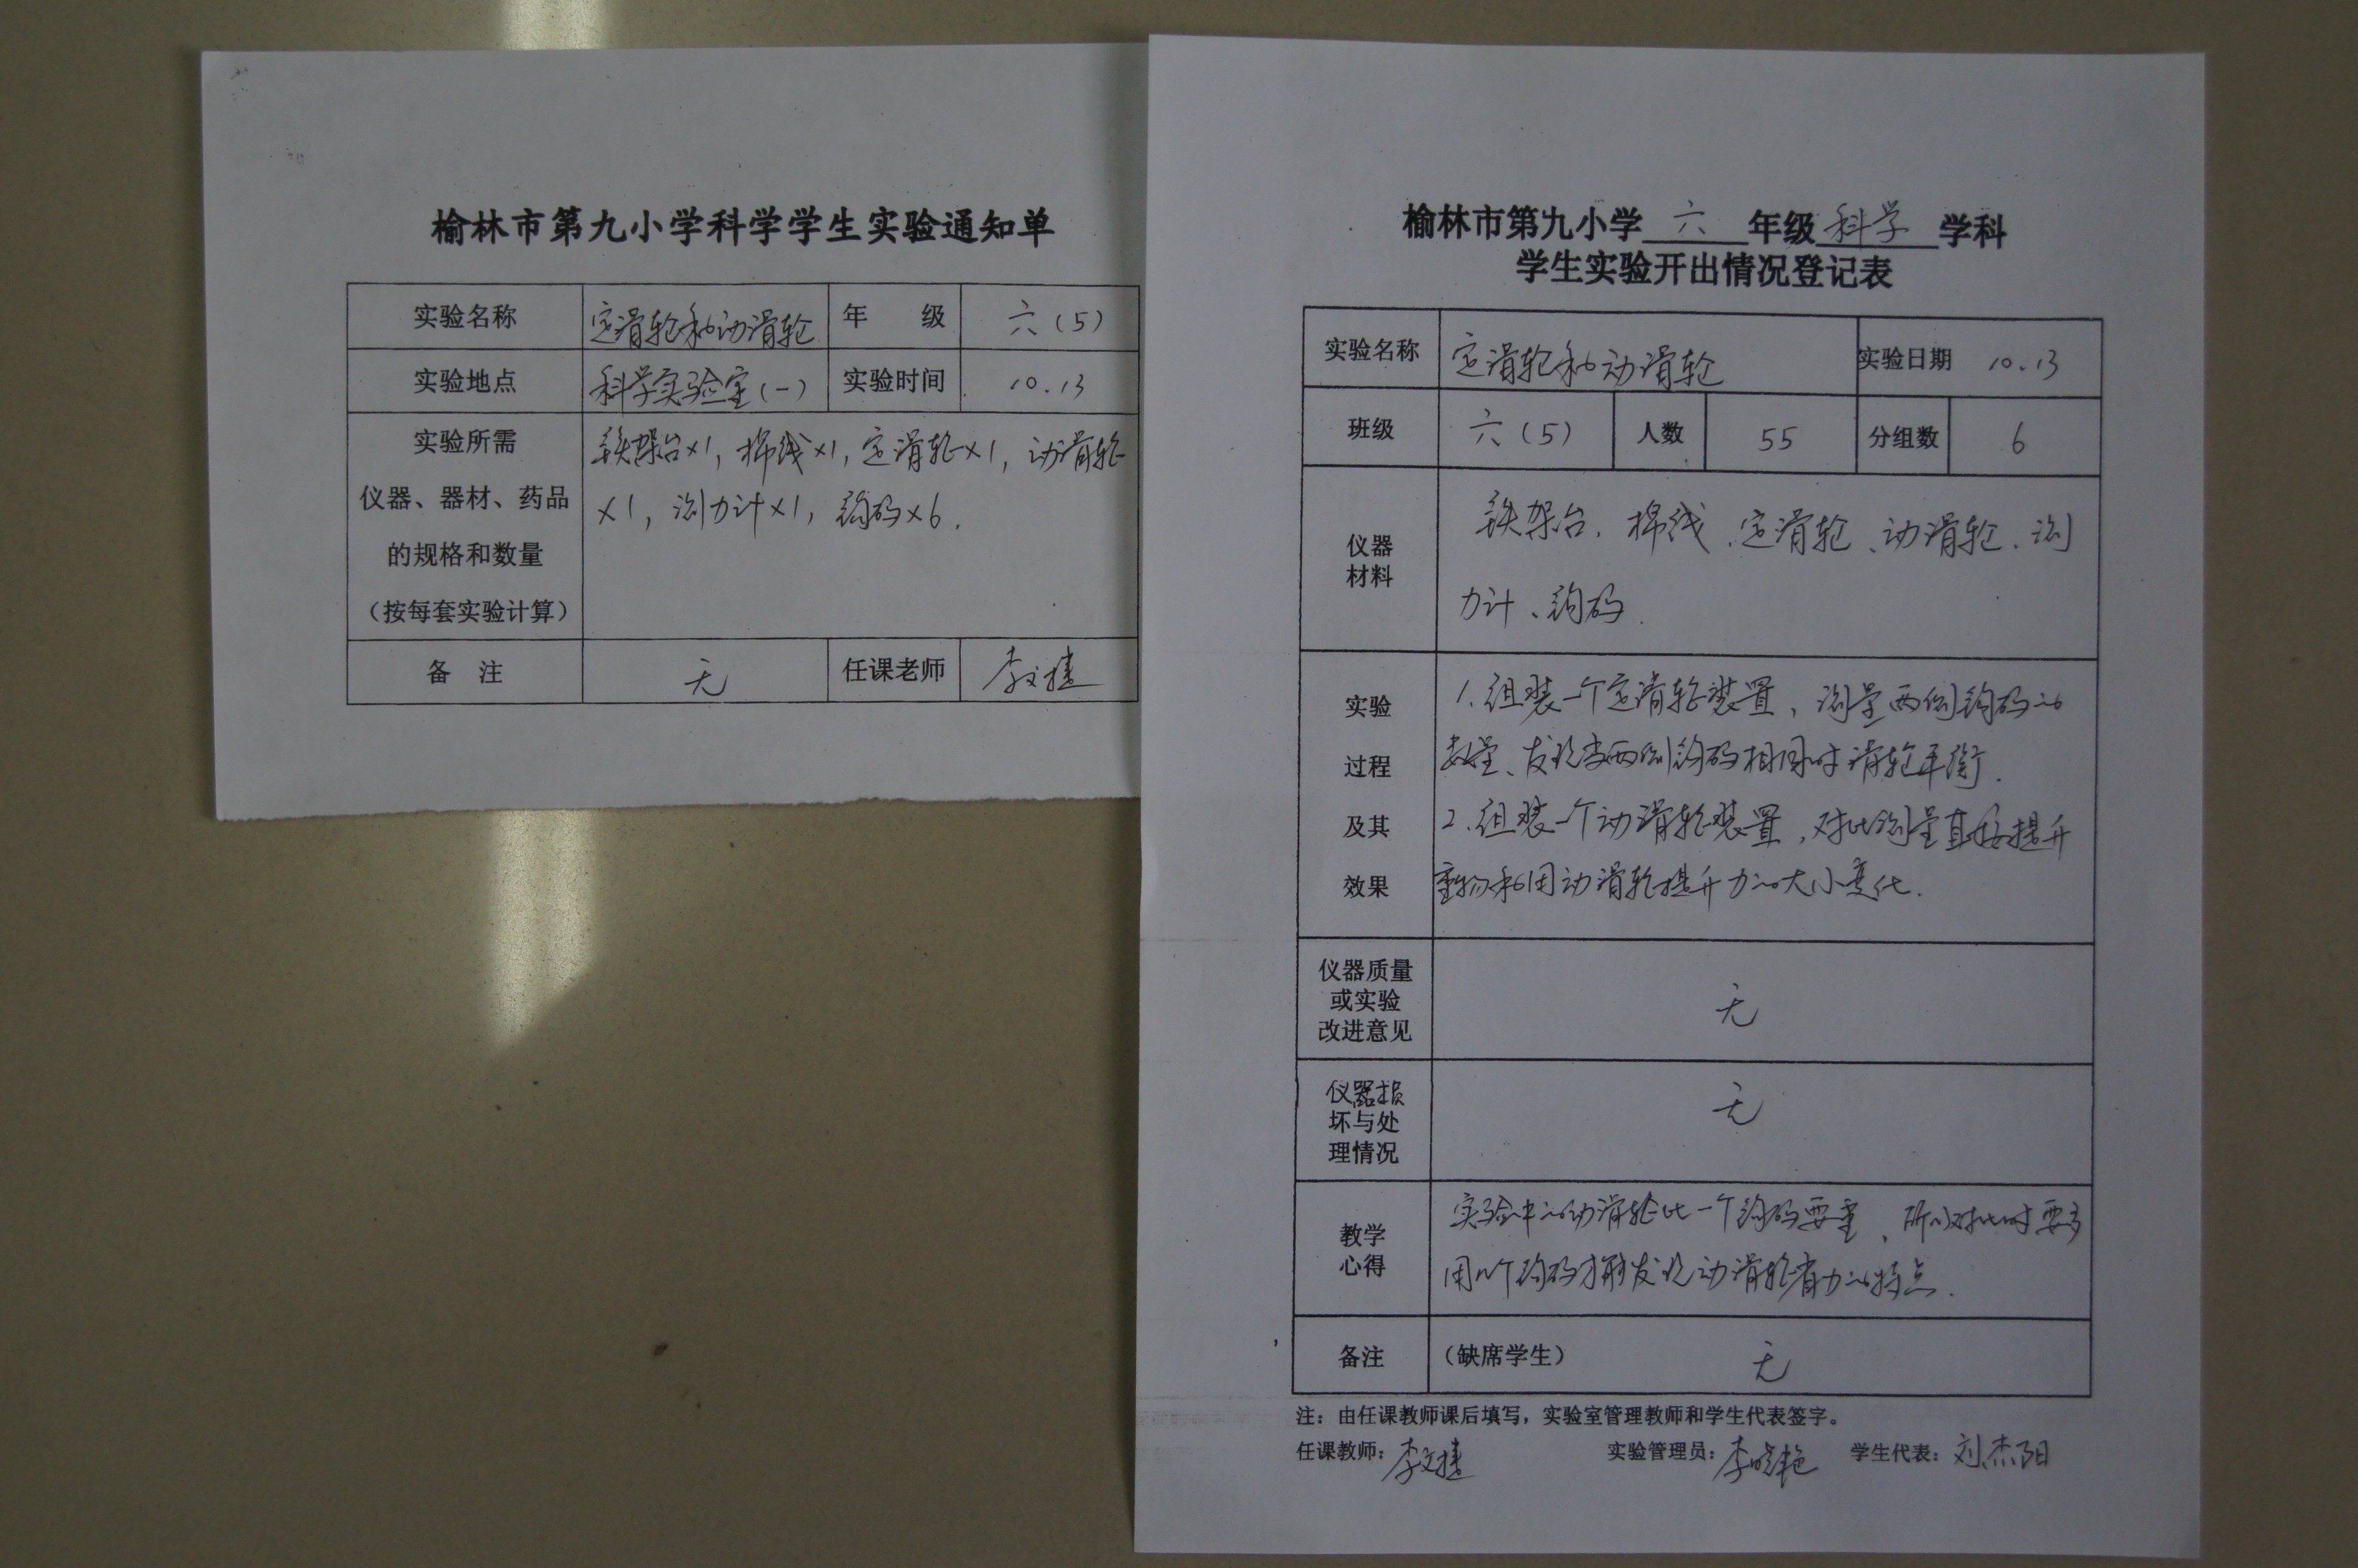 榆林市第九小学科学学生实验通知单
实验名称 定滑轮和动滑轮 年 级 六(5)
实验地点 科学实验室(一) 实验时间 10.13
实验所需
仪器、器材、药品
的规格和数量
(按每套实验计算)
铁架台×1, 棉线×1, 定滑轮×1, 动滑轮
×1, 测力计×1, 钩码×6.
备 注 无 任课老师 李文捷
榆林市第九小学 六 年级 科学 学科
学生实验开出情况登记表
实验名称 定滑轮和动滑轮 实验日期 10.13
班级 六(5) 人数 55 分组数 6
仪器
材料
铁架台、棉线、定滑轮、动滑轮、测
力计、钩码.
实验
过程
及其
效果
1.组装一个定滑轮装置,测量两侧钩码的
数量、发现当两侧钩码相同时滑轮平衡.
2.组装一个动滑轮装置,对比测量直接提升
重物和用动滑轮提升力的大小变化.
仪器质量
或实验
改进意见
无
仪器损
坏与处
理情况
无
教学
心得
实验中的动滑轮比一个钩码要重,所以对比时要多
用几个钩码才能发现动滑轮省力的特点.
备注 (缺席学生) 无
注:由任课教师课后填写,实验室管理教师和学生代表签字。
任课教师:李文捷 实验管理员:李晓艳 学生代表:刘杰阳